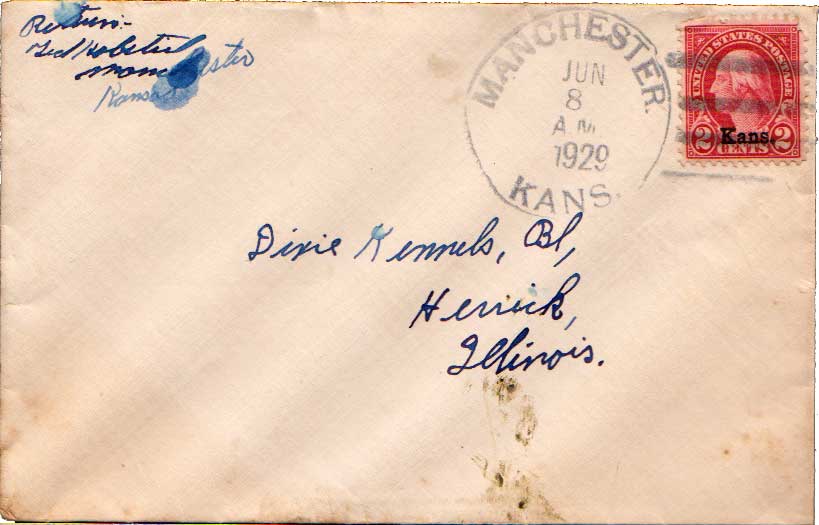 Return:-
Ted
Manchester
Kansas
MANCHESTER.
JUN
8
A.M.
1929
KANS.
UNITED STATES POSTAGE
Kans.
2 CENTS 2
Dixie Kennels, Bl,
Herrick,
Illinois.